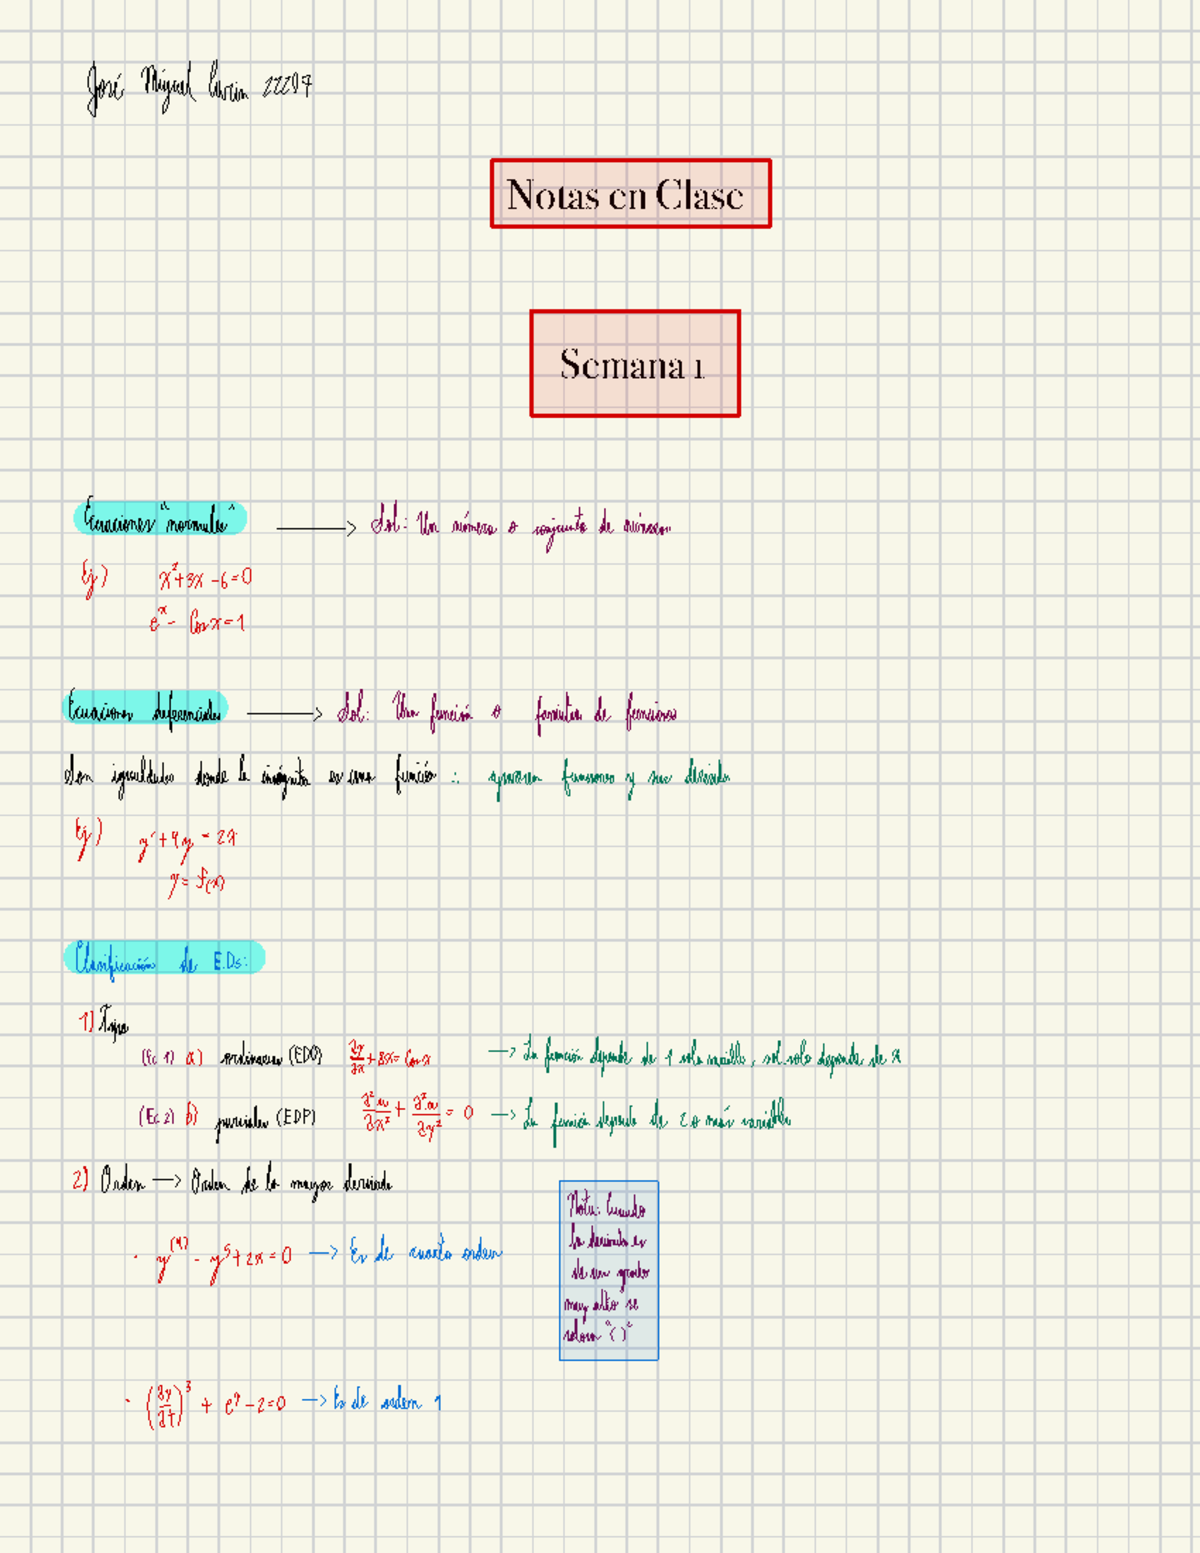 José Miguel 22207
Notas en Clase
Semana 1
Ecuaciones "normales" → Sol: Un número o conjunto de números
Ej) x²+3x-6=0
eˣ- Cos x=1
Ecuaciones diferenciales → Sol: Una función o familia de funciones
Son igualdades donde la incógnita es una función ∴ aparecen funciones y sus derivadas
Ej) y'+4y = 2x
y= f(x)
Clasificación de E.Ds:
1) Tipo
(Ec 1) a) ordinarias (EDO) ∂y/∂x+8x= Cos x → La función depende de 1 sola variable, sol solo depende de x
(Ec 2) b) parciales (EDP) ∂²u/∂x² + ∂²u/∂y² = 0 → La función depende de 2 o más variables
2) Orden → Orden de la mayor derivada
· y⁽⁴⁾ - y⁵+2x=0 → Es de cuarto orden
Nota: Cuando
la derivada es
de un grado
muy alto se
coloca "( )"
· (∂y/∂t)³ + eʸ-2=0 → Es de orden 1